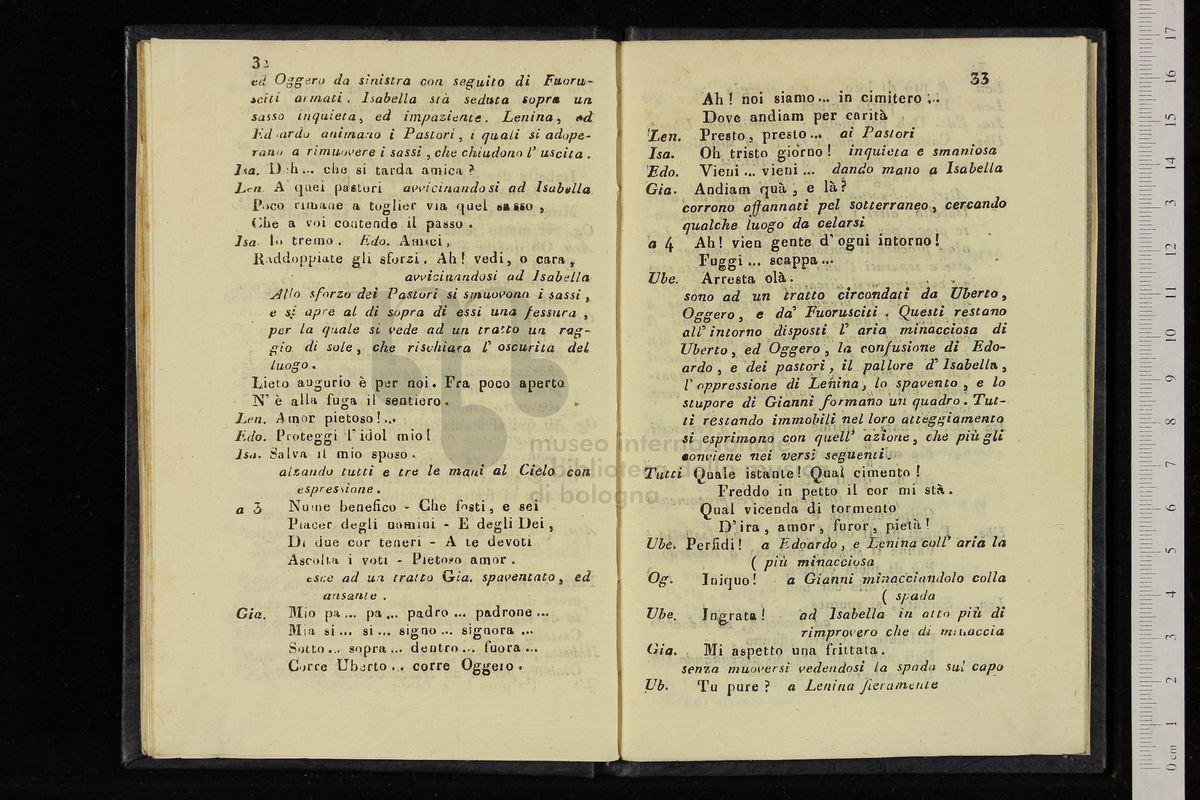 32
ed Oggero da sinistra con seguito di Fuoru-
sciti armati. Isabella stà seduta sopra un
sasso inquieta, ed impaziente. Lenina, ed
Edoardo animano i Pastori, i quali si adope-
rano a rimuovere i sassi, che chiudono l' uscita.
Isa. Deh... che si tarda amica?
Len. A quei pastori avvicinandosi ad Isabella
Poco rimane a toglier via quel sasso,
Che a voi contende il passo.
Isa. Io tremo. Edo. Amici,
Raddoppiate gli sforzi. Ah! vedi, o cara,
avvicinandosi ad Isabella
Allo sforzo dei Pastori si smuovono i sassi,
e si apre al di sopra di essi una fessura,
per la quale si vede ad un tratto un rag-
gio di sole, che rischiara l' oscurità del
luogo.
Lieto augurio è per noi. Fra poco aperto
N' è alla fuga il sentiero.
Len. Amor pietoso!...
Edo. Proteggi l'idol mio!
Isa. Salva il mio sposo.
alzando tutti e tre le mani al Cielo con
espressione.
a 3 Nume benefico - Che fosti, e sei
Piacer degli uomini - E degli Dei,
Di due cor teneri - A te devoti
Ascolta i voti - Pietoso amor.
esce ad un tratto Gia. spaventato, ed
ansante.
Gia. Mio pa... pa... padro... padrone...
Mia si... si... signo... signora...
Sotto... sopra... dentro... fuora...
Corre Uberto... corre Oggero.
33
Ah! noi siamo... in cimitero...
Dove andiam per carità
Len. Presto, presto... ai Pastori
Isa. Oh tristo giorno! inquieta e smaniosa
Edo. Vieni... vieni... dando mano a Isabella
Gia. Andiam quà, e là?
corrono affannati pel sotterraneo, cercando
qualche luogo da celarsi
a 4 Ah! vien gente d' ogni intorno!
Fuggi... scappa...
Ube. Arresta olà.
sono ad un tratto circondati da Uberto,
Oggero, e da' Fuorusciti. Questi restano
all' intorno disposti l' aria minacciosa di
Uberto, ed Oggero, la confusione di Edo-
ardo, e dei pastori, il pallore d' Isabella,
l' oppressione di Lenina, lo spavento, e lo
stupore di Gianni formano un quadro. Tut-
ti restando immobili nel loro atteggiamento
si esprimono con quell' azione, che più gli
conviene nei versi seguenti.
Tutti Quale istante! Qual cimento!
Freddo in petto il cor mi stà.
Qual vicenda di tormento
D' ira, amor, furor, pietà!
Ube. Perfidi! a Edoardo, e Lenina coll' aria la
( più minacciosa
Og. Iniquo! a Gianni minacciandolo colla
( spada
Ube. Ingrata! ad Isabella in atto più di
rimprovero che di minaccia
Gia. Mi aspetto una frittata.
senza muoversi vedendosi la spada sul capo
Ub. Tu pure? a Lenina fieramente
museo internazionale
e biblioteca della musica
di bologna
0 cm 1 2 3 4 5 6 7 8 9 10 11 12 13 14 15 16 17